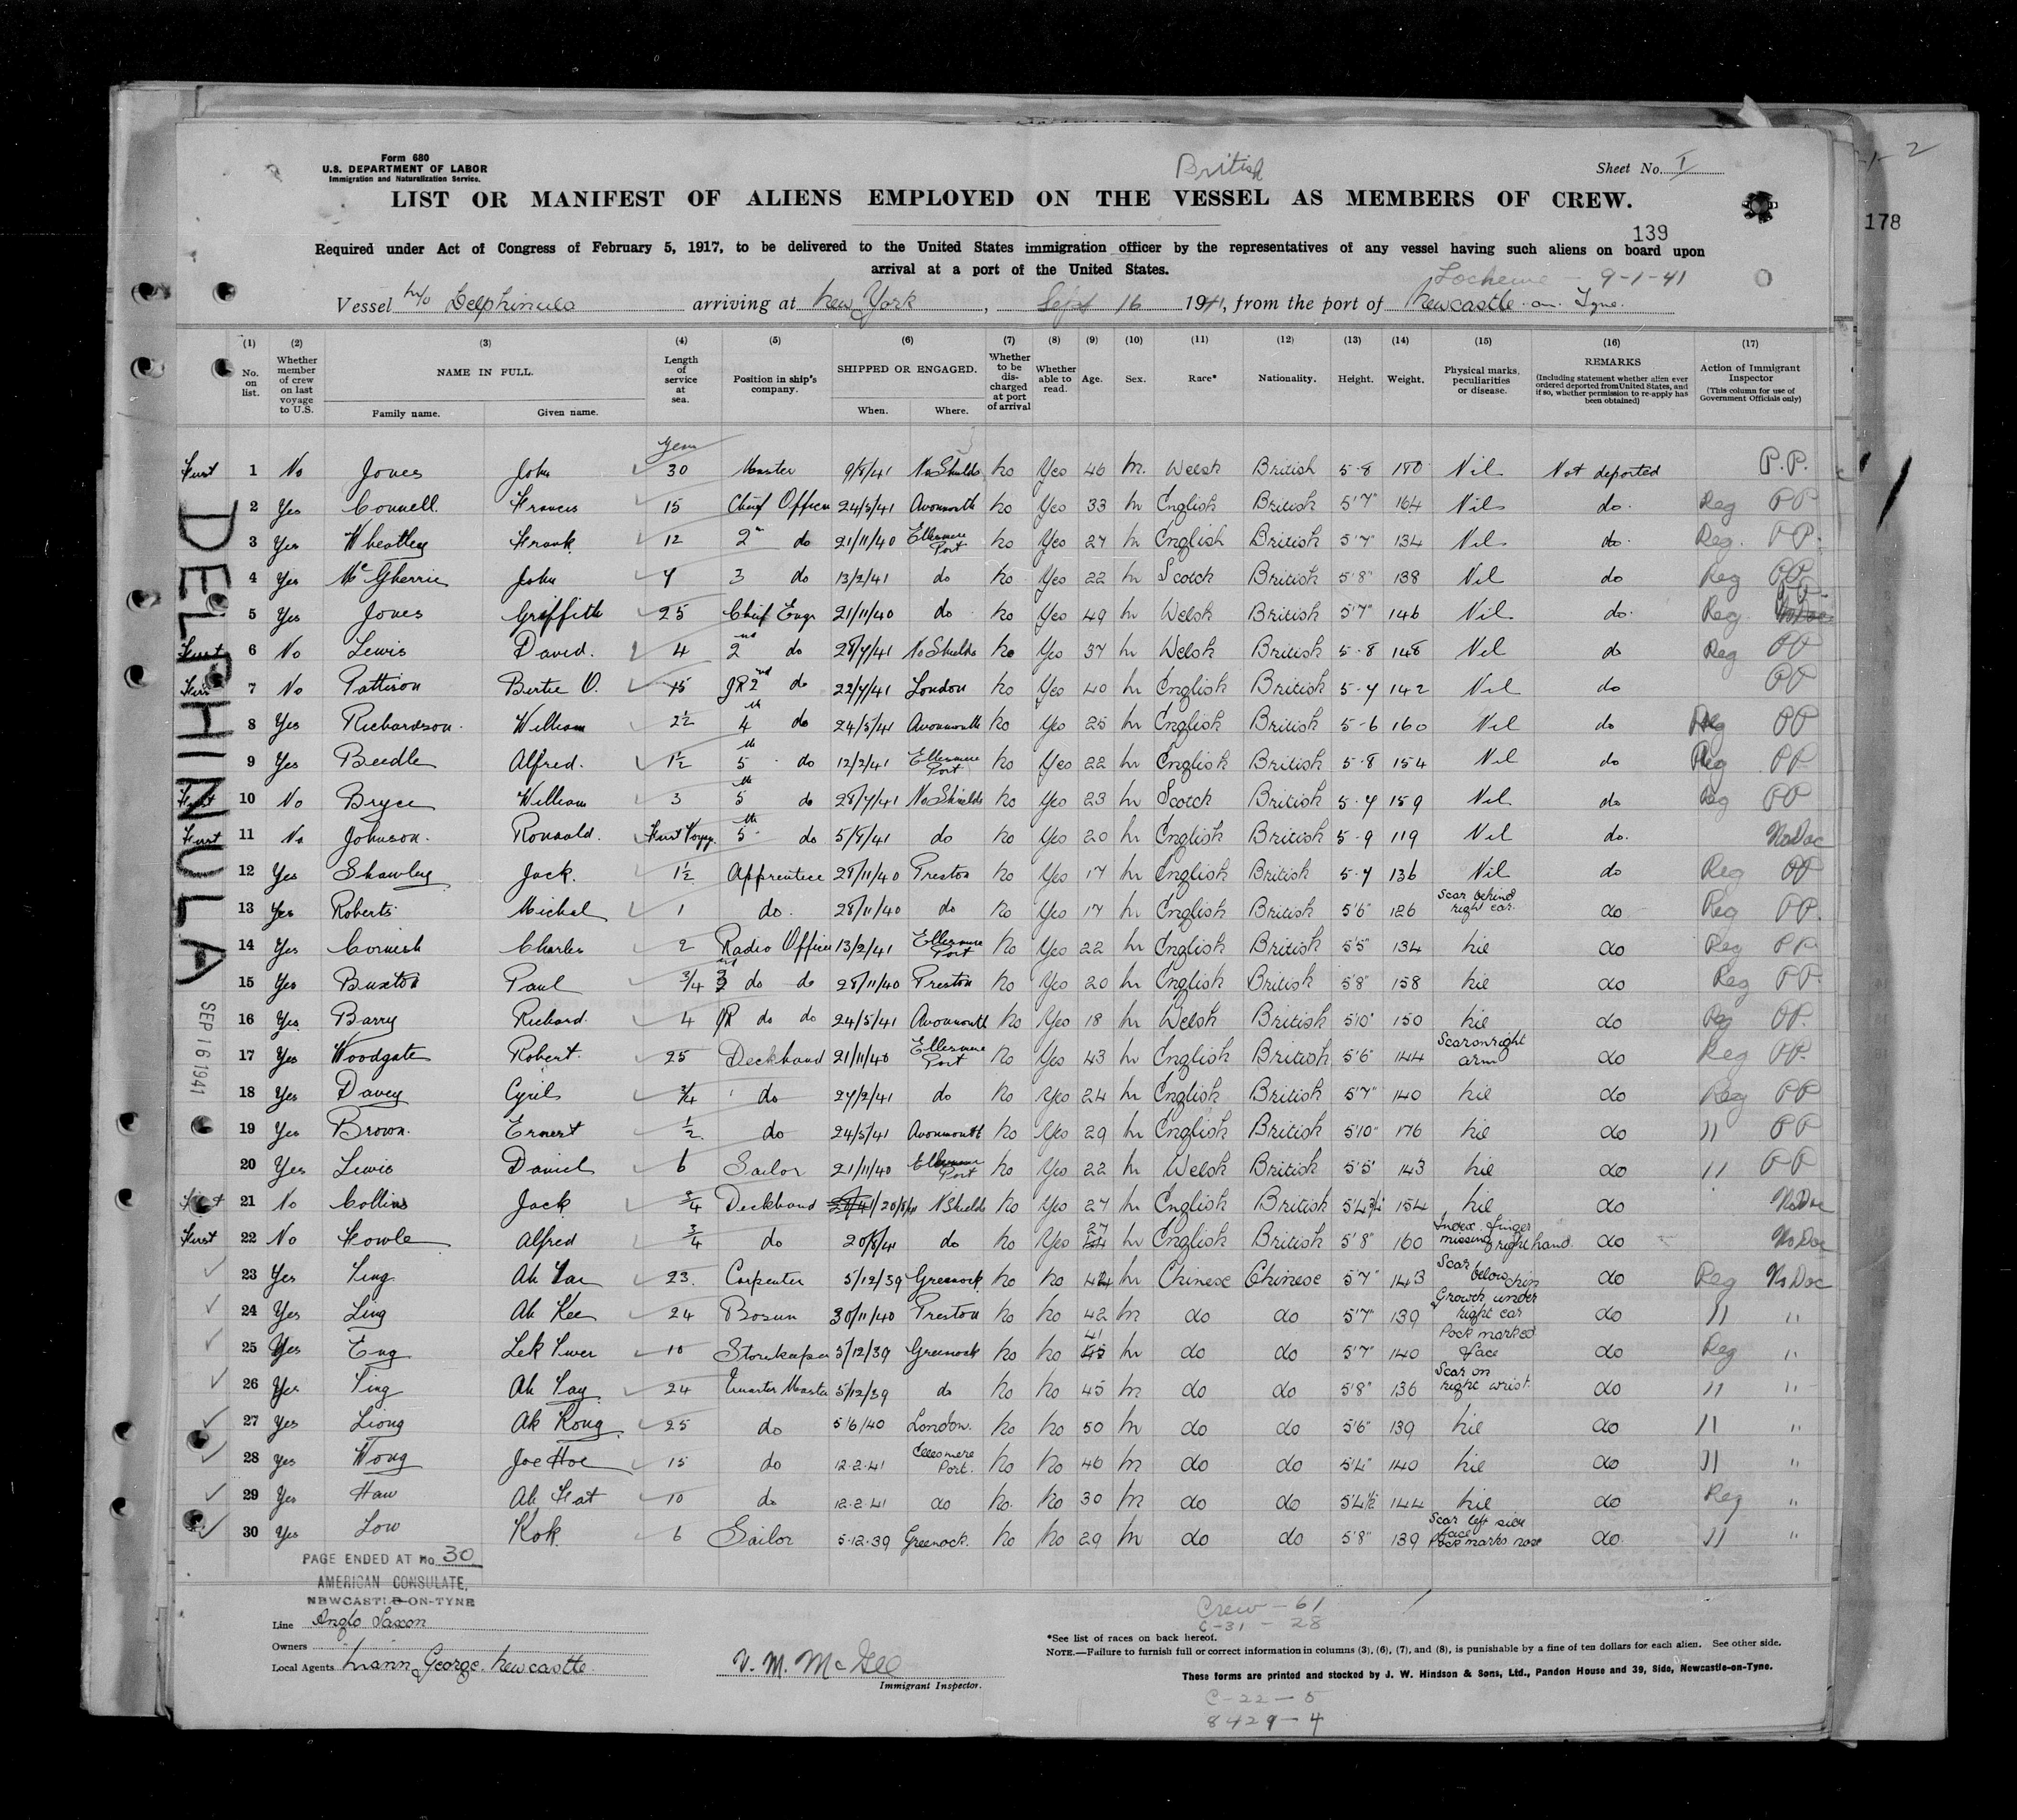 Form 680
U.S. DEPARTMENT OF LABOR
Immigration and Naturalization Service.
British
Sheet No. I
LIST OR MANIFEST OF ALIENS EMPLOYED ON THE VESSEL AS MEMBERS OF CREW.
139
178
Required under Act of Congress of February 5, 1917, to be delivered to the United States immigration officer by the representatives of any vessel having such aliens on board upon
arrival at a port of the United States.
9-1-41
Vessel Delphinula arriving at New York, Sept 16 1941, from the port of Newcastle-on-Tyne.
(1) (2) (3) (4) (5) (6) (7) (8) (9) (10) (11) (12) (13) (14) (15) (16) (17)
No. on list. Whether member of crew on last voyage to U.S. NAME IN FULL. Family name. Given name. Length of service at sea. Position in ship's company. SHIPPED OR ENGAGED. When. Where. Whether to be discharged at port of arrival Whether able to read. Age. Sex. Race* Nationality. Height. Weight. Physical marks, peculiarities or disease. REMARKS (Including statement whether alien ever ordered deported from United States, and if so, whether permission to re-apply has been obtained) Action of Immigrant Inspector (This column for use of Government Officials only)
First 1 No Jones John 30 Master 9/8/41 No Shields No Yes 46 M. Welsh British 5-8 180 Nil Not deported P.P.
2 Yes Connell Francis 15 Chief Officer 24/5/41 Avonmouth No Yes 33 M English British 5'7" 164 Nil do. Reg PP
3 Yes Wheatley Frank 12 2nd do 21/11/40 Ellesmere Port No Yes 27 M English British 5'7" 134 Nil do. Reg. PP.
4 Yes McGherrie John 7 3 do 13/2/41 do No Yes 22 M Scotch British 5'8" 138 Nil do Reg PP
5 Yes Jones Griffith 25 Chief Engr 21/11/40 do No Yes 49 M Welsh British 5'7" 146 Nil do. Reg. PP
First 6 No Lewis David. 4 2nd do 28/7/41 No Shields No Yes 37 M Welsh British 5-8 148 Nil do Reg PP
First 7 No Pattison Bertie O. 15 JR 2nd do 22/7/41 London No Yes 40 M English British 5-7 142 Nil do PP
8 Yes Richardson William 2½ 4th do 24/5/41 Avonmouth No Yes 25 M English British 5-6 160 Nil do Reg PP
9 Yes Beedle Alfred. 1½ 5th do 12/2/41 Ellesmere Port No Yes 22 M English British 5-8 154 Nil do Reg PP
First 10 No Bryce William 3 5th do 28/7/41 No Shields No Yes 23 M Scotch British 5-7 159 Nil do Reg PP
First 11 No Johnson. Ronald. First Voyg. 5th do 5/8/41 do No Yes 20 M English British 5-9 119 Nil do. No Doc
12 Yes Shawley Jack. 1½ Apprentice 28/11/40 Preston No Yes 17 M English British 5-7 136 Nil do Reg PP
13 Yes Roberts Michal 1 do. 28/11/40 do No Yes 17 M English British 5'6" 126 Scar behind right ear. do Reg PP.
14 Yes Cornish Charles 2 Radio Officer 13/2/41 Ellesmere Port No Yes 22 M English British 5'5" 134 Nil do Reg PP
15 Yes Buxton Paul 3/4 do do 28/11/40 Preston No Yes 20 M English British 5'8" 158 Nil do Reg PP
16 Yes Barry Richard. 4 JR do do 24/5/41 Avonmouth No Yes 18 M Welsh British 5'10" 150 Nil do Reg PP.
17 Yes Woodgate Robert. 25 Deckhand 21/11/40 Ellesmere Port No Yes 43 M English British 5'6" 144 Scar on right arm do Reg PP.
18 Yes Davey Cyril 3/4 do 27/2/41 do No Yes 24 M English British 5'7" 140 Nil do Reg PP
19 Yes Brown. Ernest ½ do 24/5/41 Avonmouth No Yes 29 M English British 5'10" 176 Nil do " PP
20 Yes Lewis Daniel 6 Sailor 21/11/40 Ellesmere Port No Yes 22 M Welsh British 5'5" 143 Nil do " PP
First 21 No Collins Jack 3/4 Deckhand 20/8/41 N Shields No Yes 27 M English British 5'4¾ 154 Nil do No Doc
First 22 No Fowle Alfred 3/4 do 20/8/41 do No Yes 27 M English British 5'8" 160 Index finger missing right hand. do No Doc
23 Yes Ting Ah 23. Carpenter 5/12/39 Greenock No No 42 M Chinese Chinese 5'7" 143 Scar below chin do Reg No Doc
24 Yes Ling Ah Kee 24 Bosun 30/11/40 Preston No No 42 M do do 5'7" 139 Growth under right ear do " "
25 Yes Eng Lek 10 Storekeeper 5/12/39 Greenock No No 41 M do do 5'7" 140 Pock marked face do Reg "
26 Yes Ting Ah 24 Quarter Master 5/12/39 do No No 45 M do do 5'8" 136 Scar on right wrist. do " "
27 Yes Liong Ah Kong 25 do 5/6/40 London. No No 50 M do do 5'6" 139 Nil do " "
28 Yes Wong Joe Hoe 15 do 12.2.41 Ellesmere Port. No No 46 M do do 5'4" 140 Nil do " "
29 Yes Haw Ah Fat 10 do 12.2.41 do No. No 30 M do do 5'4½ 144 Nil do Reg "
30 Yes Low Kok. 6 Sailor 5.12.39 Greenock. No No 29 M do do 5'8" 139 Scar left side face Pock marks nose do. " "
DELPHINULA
SEP 16 1941
PAGE ENDED AT No. 30
AMERICAN CONSULATE,
NEWCASTLE-ON-TYNE
Line Anglo Saxon
Owners " "
Local Agents Mann George. Newcastle.
V. M. McGee
Immigrant Inspector.
Crew - 61
C-31 - 28
*See list of races on back hereof.
NOTE.—Failure to furnish full or correct information in columns (3), (6), (7), and (8), is punishable by a fine of ten dollars for each alien. See other side.
These forms are printed and stocked by J. W. Hindson & Sons, Ltd., Pandon House and 39, Side, Newcastle-on-Tyne.
C-22-5
8429-4